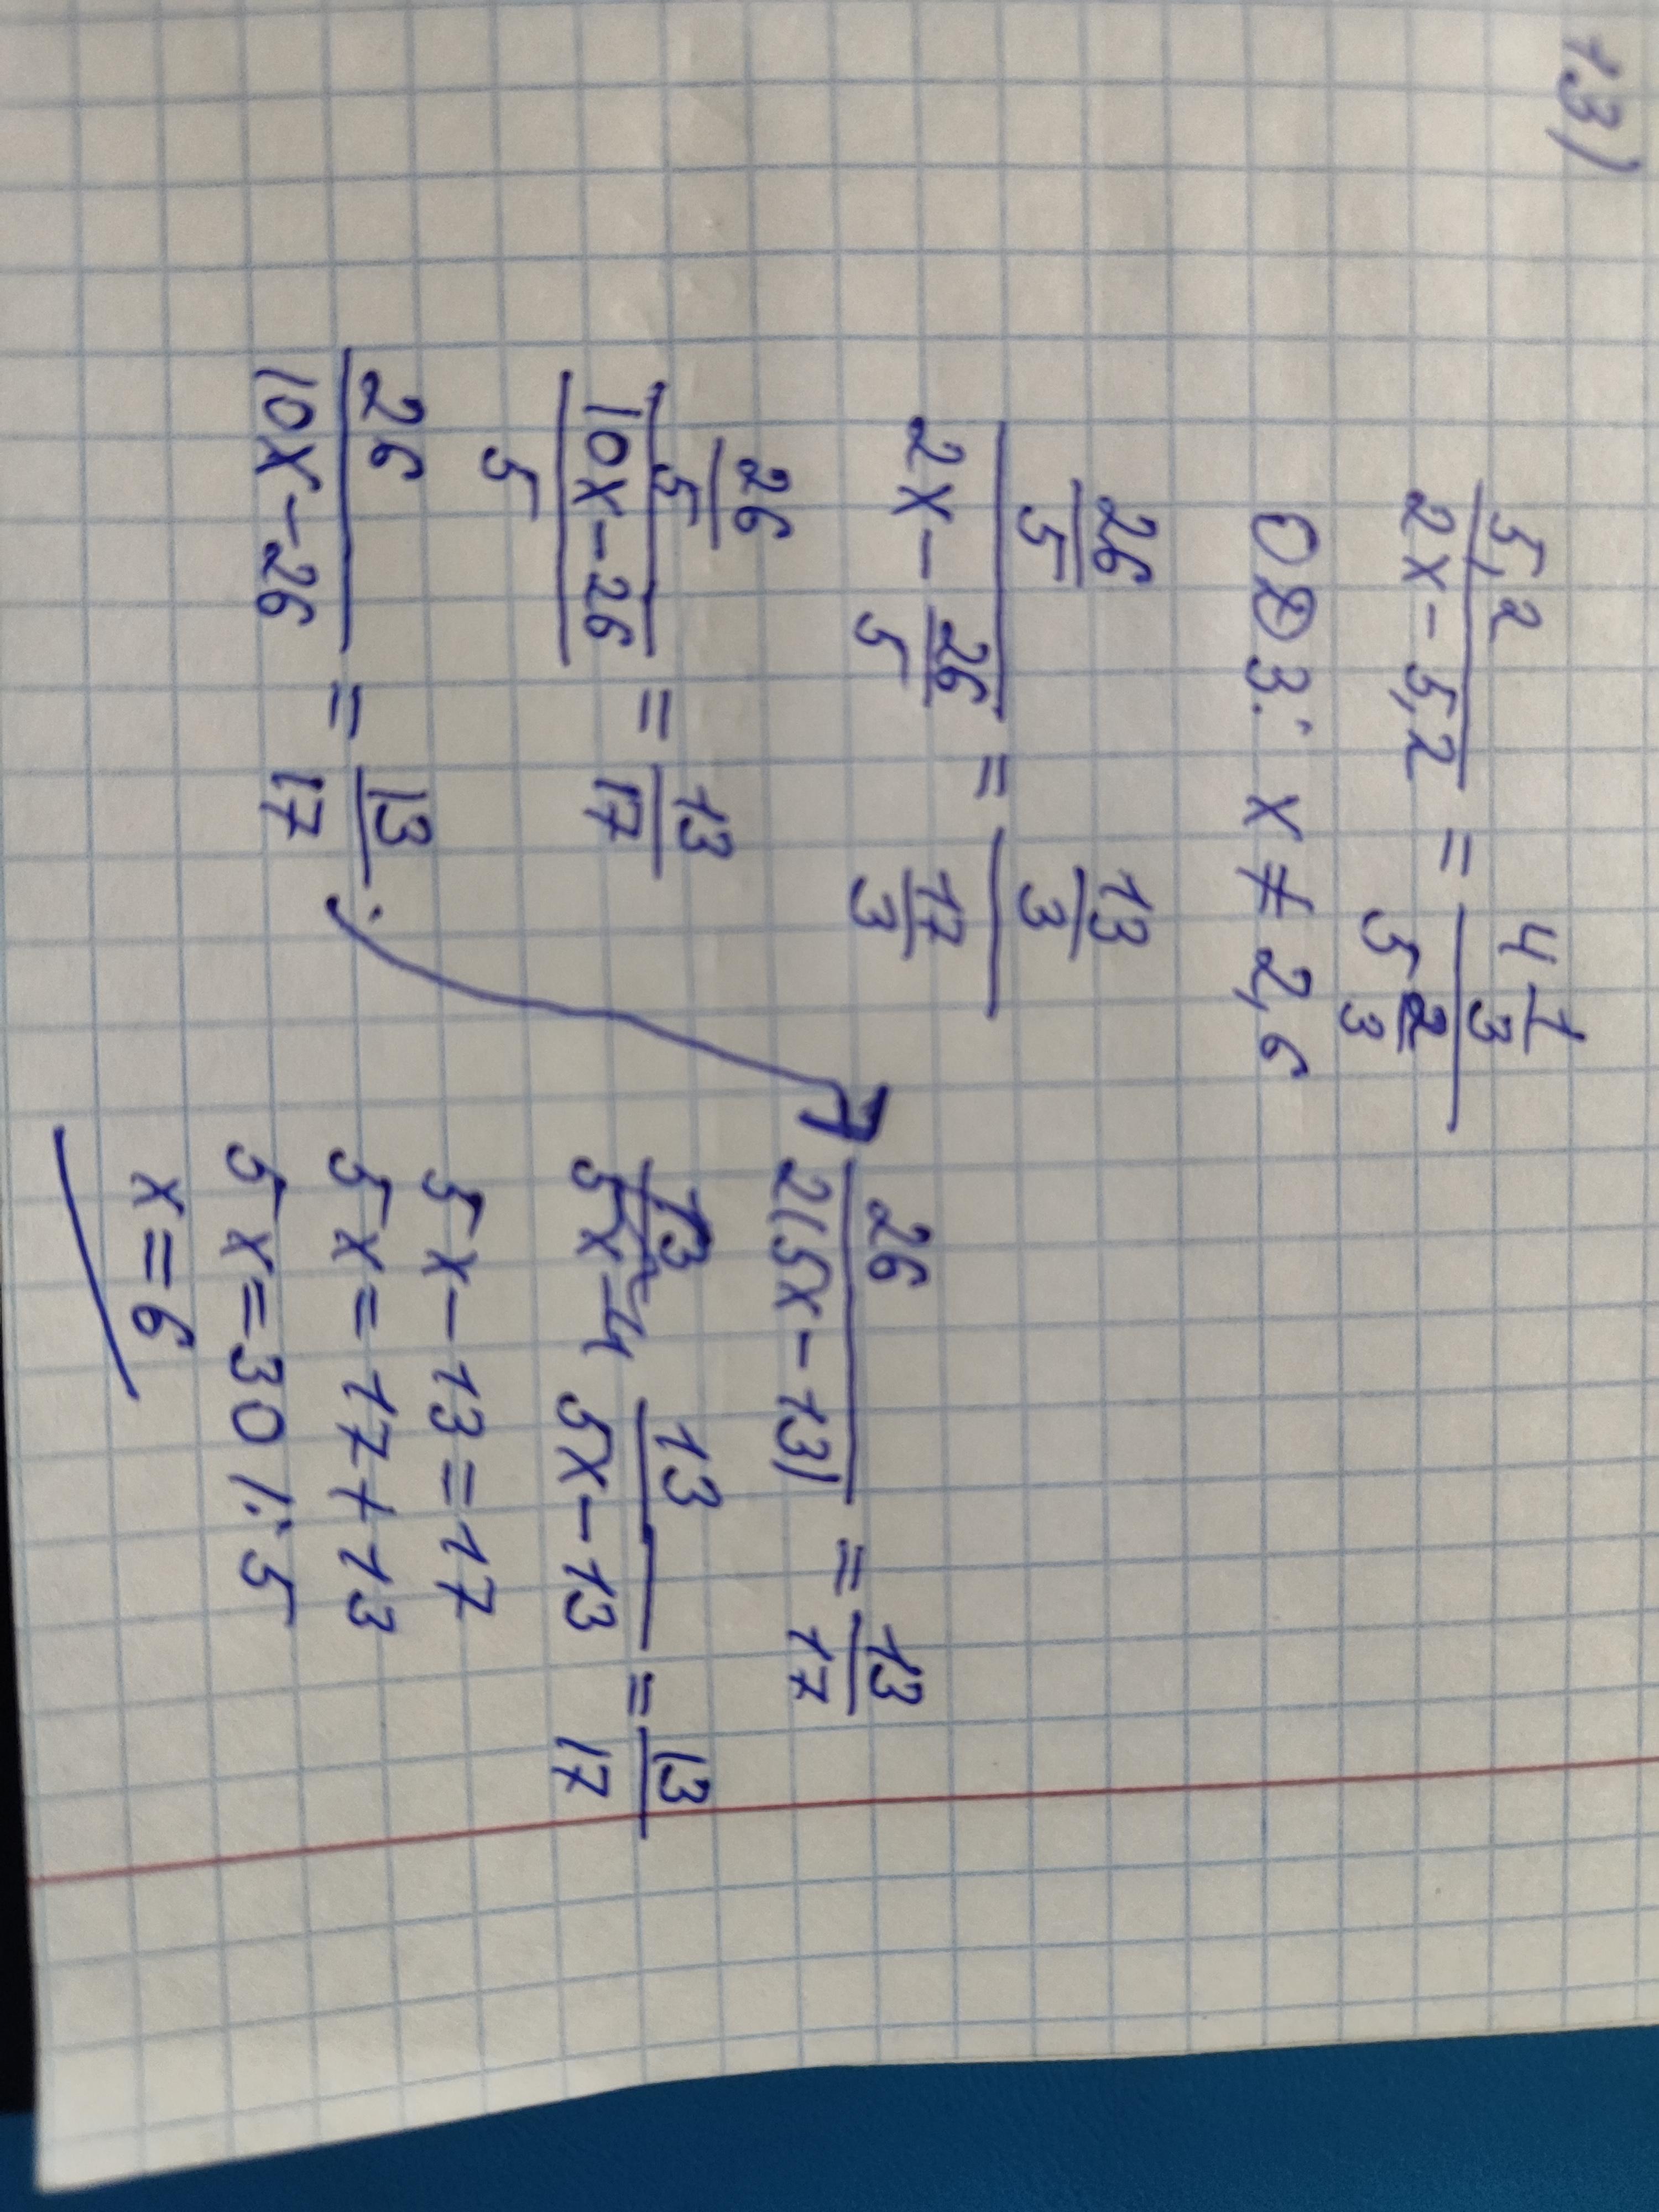 13)
5,2/(2x-5,2) = 4 1/3 / 5 2/3
ОДЗ: x ≠ 2,6
26/5 / (2x - 26/5) = 13/3 / 17/3
26/5 / (10x-26)/5 = 13/17
26/(10x-26) = 13/17 ;
26/2(5x-13) = 13/17
13/(5x-13) = 13/17
5x-13=17
5x=17+13
5x=30 /:5
x=6